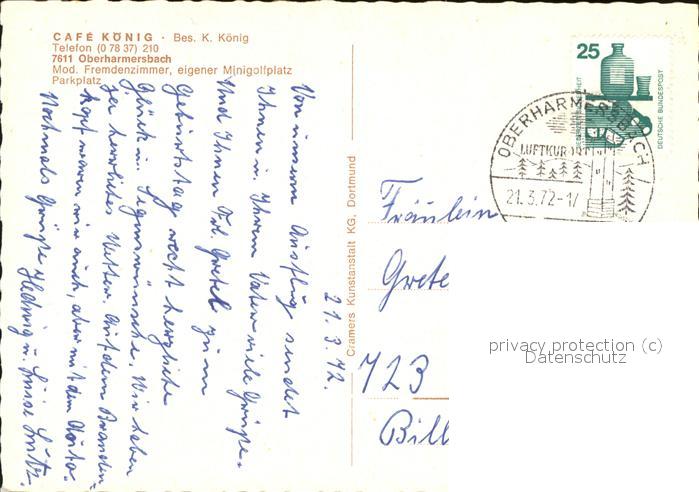 CAFÉ KÖNIG · Bes. K. König
Telefon (0 78 37) 210
7611 Oberharmersbach
Mod. Fremdenzimmer, eigener Minigolfplatz
Parkplatz
25
DEUTSCHE BUNDESPOST
OBERHARMERSBACH
LUFTKURORT
21.3.72-17
21.3.72.
Von unserm Ausflug sendet
Ihnen u. Ihrem Vater viele Grüsse.
Und Ihnen Frl. Gretel zum
Geburtstag recht herzliche
Glück u. Segenswünsche. Wir haben
herrliches Wetter. Auf dem Branden
kopf waren wir auch, aber mit dem Auto.
Nochmals Grüsse Hedwig u. Luise
Cramers Kunstanstalt KG, Dortmund
Fräulein
Grete
723
Bill
privacy protection (c)
Datenschutz